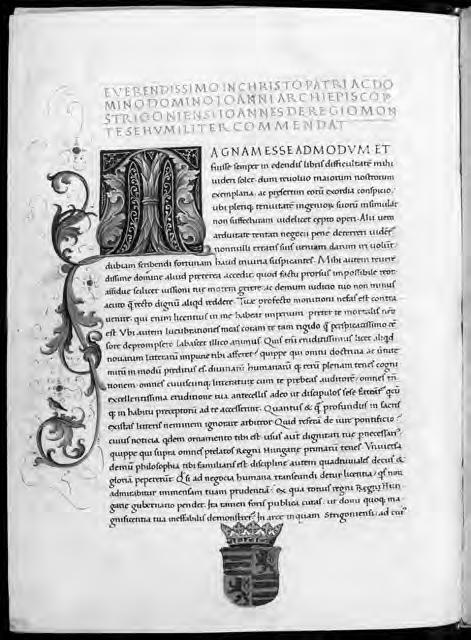 EVERENDISSIMO IN CHRISTO PATRI AC DO
MINO DOMINO IOANNI ARCHIEPISCOP
STRIGONIENSI IOANNES DE REGIOMON
TE SE HVMILITER COMMENDAT
MAGNAM ESSE ADMODVM ET
fuisse semper in edendis libris difficultatē mihi
uideri solet dum reuoluo maiorum nostrorum
exemplaria ac presertim eorū exordia conspicio
ubi pleriq; tenuitate ingenioꝝ suorū insimulāt
non suffecturam uidelicet cepto operi. Alii uero
arduitate rei tentari negocii pene deterreri uidēt̄
nonnulli erratis suis ueniam darum iri uolūt
dubiam scribendi fortunam haud iniuria suspicantes. Mihi autem reueren
dissime domine aliud preterea accedit quod factu prorsus impossibile reor
assidue scilicet iussioni tue morem gerere ac demum iudicio tuo non minus
acuto q̄ recto dignū aliqd reddere. Tue profecto monitioni nefas est contra
uenire qui enim licentius in me habeat imperium preter te mortaliū nēo
est. Vbi autem lucubrationes meas coram te tam rigido q̄ perspicatissimo cē
sore deprompsero labascet illico animus. Quis enī eruditissimus licet
nouarum litterarū impune tibi afferret quippe qui omni doctrina
mirū in modū preditus es diuinarū humanarū q̄ rerū plenam tenes cogni
tionem omnes cuiuscunq; litterature cum te prebeas auditorē omnes
excellentissima eruditione tua antecellis adeo ut discipulos sese
q̄ in habitu preceptorū ad te accesserint. Quantus q̄ profundus in sacris
existas litteris neminem ignorare arbitror Quid referā de iure pontificio
cuius noticia qdem ornamento tibi est usui aut dignitati tue pnecessari
quippe qui supra omnes prelatos Regni Hungarie primatū tenes Vniuersa
demū philosophia tibi familiaris est discipline autem quadriuiales decus &
gloriā pepererūt Qd si ad negocia humana transeundi detur licentia quis non
admirabitur immensam tuam prudentiā ex qua totius regni Regni Hun
garie gubernatio pendet. Ita tamen foris publica curas ut domi quoq; ma
gnificentia tua ineffabilis demonstret̄. In arce inquam Strigoniensi ad cui